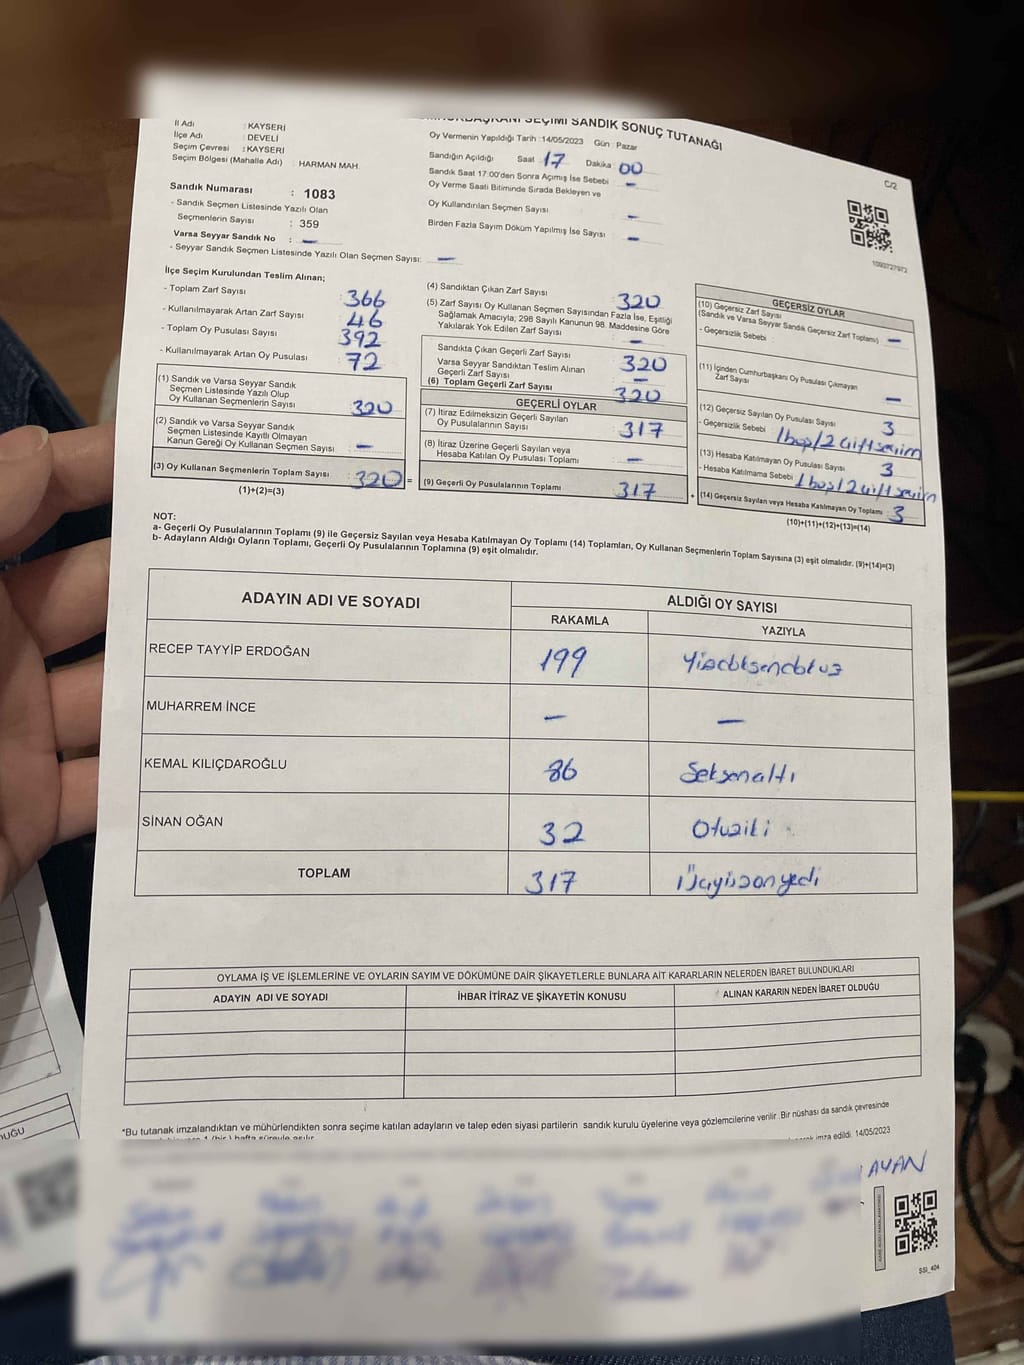 SEÇİMİ SANDIK SONUÇ TUTANAĞI
C/2
İl Adı : KAYSERİ
İlçe Adı : DEVELİ
Seçim Çevresi : KAYSERİ
Seçim Bölgesi (Mahalle Adı) : HARMAN MAH.
Sandık Numarası : 1083
- Sandık Seçmen Listesinde Yazılı Olan
Seçmenlerin Sayısı : 359
Varsa Seyyar Sandık No : —
- Seyyar Sandık Seçmen Listesinde Yazılı Olan Seçmen Sayısı: —
Oy Vermenin Yapıldığı Tarih :14/05/2023 Gün : Pazar
Sandığın Açıldığı Saat 17 Dakika 00
Sandık Saat 17:00'den Sonra Açımış İse Sebebi —
Oy Verme Saati Bitiminde Sırada Bekleyen ve
Oy Kullandırılan Seçmen Sayısı —
Birden Fazla Sayım Döküm Yapılmış İse Sayısı —
1093727972
İlçe Seçim Kurulundan Teslim Alınan;
- Toplam Zarf Sayısı 366
- Kullanılmayarak Artan Zarf Sayısı 46
- Toplam Oy Pusulası Sayısı 392
- Kullanılmayarak Artan Oy Pusulası 72
(1) Sandık ve Varsa Seyyar Sandık
Seçmen Listesinde Yazılı Olup
Oy Kullanan Seçmenlerin Sayısı 320
(2) Sandık ve Varsa Seyyar Sandık
Seçmen Listesinde Kayıtlı Olmayan
Kanun Gereği Oy Kullanan Seçmen Sayısı —
(3) Oy Kullanan Seçmenlerin Toplam Sayısı 320 =
(1)+(2)=(3)
(4) Sandıktan Çıkan Zarf Sayısı 320
(5) Zarf Sayısı Oy Kullanan Seçmen Sayısından Fazla İse, Eşitliği
Sağlamak Amacıyla; 298 Sayılı Kanunun 98. Maddesine Göre
Yakılarak Yok Edilen Zarf Sayısı —
Sandıkta Çıkan Geçerli Zarf Sayısı 320
Varsa Seyyar Sandıktan Teslim Alınan
Geçerli Zarf Sayısı —
(6) Toplam Geçerli Zarf Sayısı 320
GEÇERLİ OYLAR
(7) İtiraz Edilmeksizin Geçerli Sayılan
Oy Pusulalarının Sayısı 317
(8) İtiraz Üzerine Geçerli Sayılan veya
Hesaba Katılan Oy Pusulası Toplamı —
(9) Geçerli Oy Pusulalarının Toplamı 317 +
GEÇERSİZ OYLAR
(10) Geçersiz Zarf Sayısı
(Sandık ve Varsa Seyyar Sandık Geçersiz Zarf Toplamı) —
- Geçersizlik Sebebi
(11) İçinden Cumhurbaşkanı Oy Pusulası Çıkmayan
Zarf Sayısı —
(12) Geçersiz Sayılan Oy Pusulası Sayısı 3
- Geçersizlik Sebebi 1 boş/2 çift seçim
(13) Hesaba Katılmayan Oy Pusulası Sayısı 3
- Hesaba Katılmama Sebebi 1 boş/2 çift seçim
(14) Geçersiz Sayılan veya Hesaba Katılmayan Oy Toplamı 3
(10)+(11)+(12)+(13)=(14)
NOT:
a- Geçerli Oy Pusulalarının Toplamı (9) ile Geçersiz Sayılan veya Hesaba Katılmayan Oy Toplamı (14) Toplamları, Oy Kullanan Seçmenlerin Toplam Sayısına (3) eşit olmalıdır. (9)+(14)=(3)
b- Adayların Aldığı Oyların Toplamı, Geçerli Oy Pusulalarının Toplamına (9) eşit olmalıdır.
ADAYIN ADI VE SOYADI
ALDIĞI OY SAYISI
RAKAMLA YAZIYLA
RECEP TAYYİP ERDOĞAN 199 Yüzdoksandokuz
MUHARREM İNCE — —
KEMAL KILIÇDAROĞLU 86 Seksenaltı
SİNAN OĞAN 32 Otuziki
TOPLAM 317 Üçyüzonyedi
OYLAMA İŞ VE İŞLEMLERİNE VE OYLARIN SAYIM VE DÖKÜMÜNE DAİR ŞİKAYETLERLE BUNLARA AİT KARARLARIN NELERDEN İBARET BULUNDUKLARI
ADAYIN ADI VE SOYADI İHBAR İTİRAZ VE ŞİKAYETİN KONUSU ALINAN KARARIN NEDEN İBARET OLDUĞU
*Bu tutanak imzalandıktan ve mühürlendikten sonra seçime katılan adayların ve talep eden siyasi partilerin sandık kurulu üyelerine veya gözlemcilerine verilir. Bir nüshası da sandık çevresinde
imza edildi. 14/05/2023
AYAN
SSİ_404